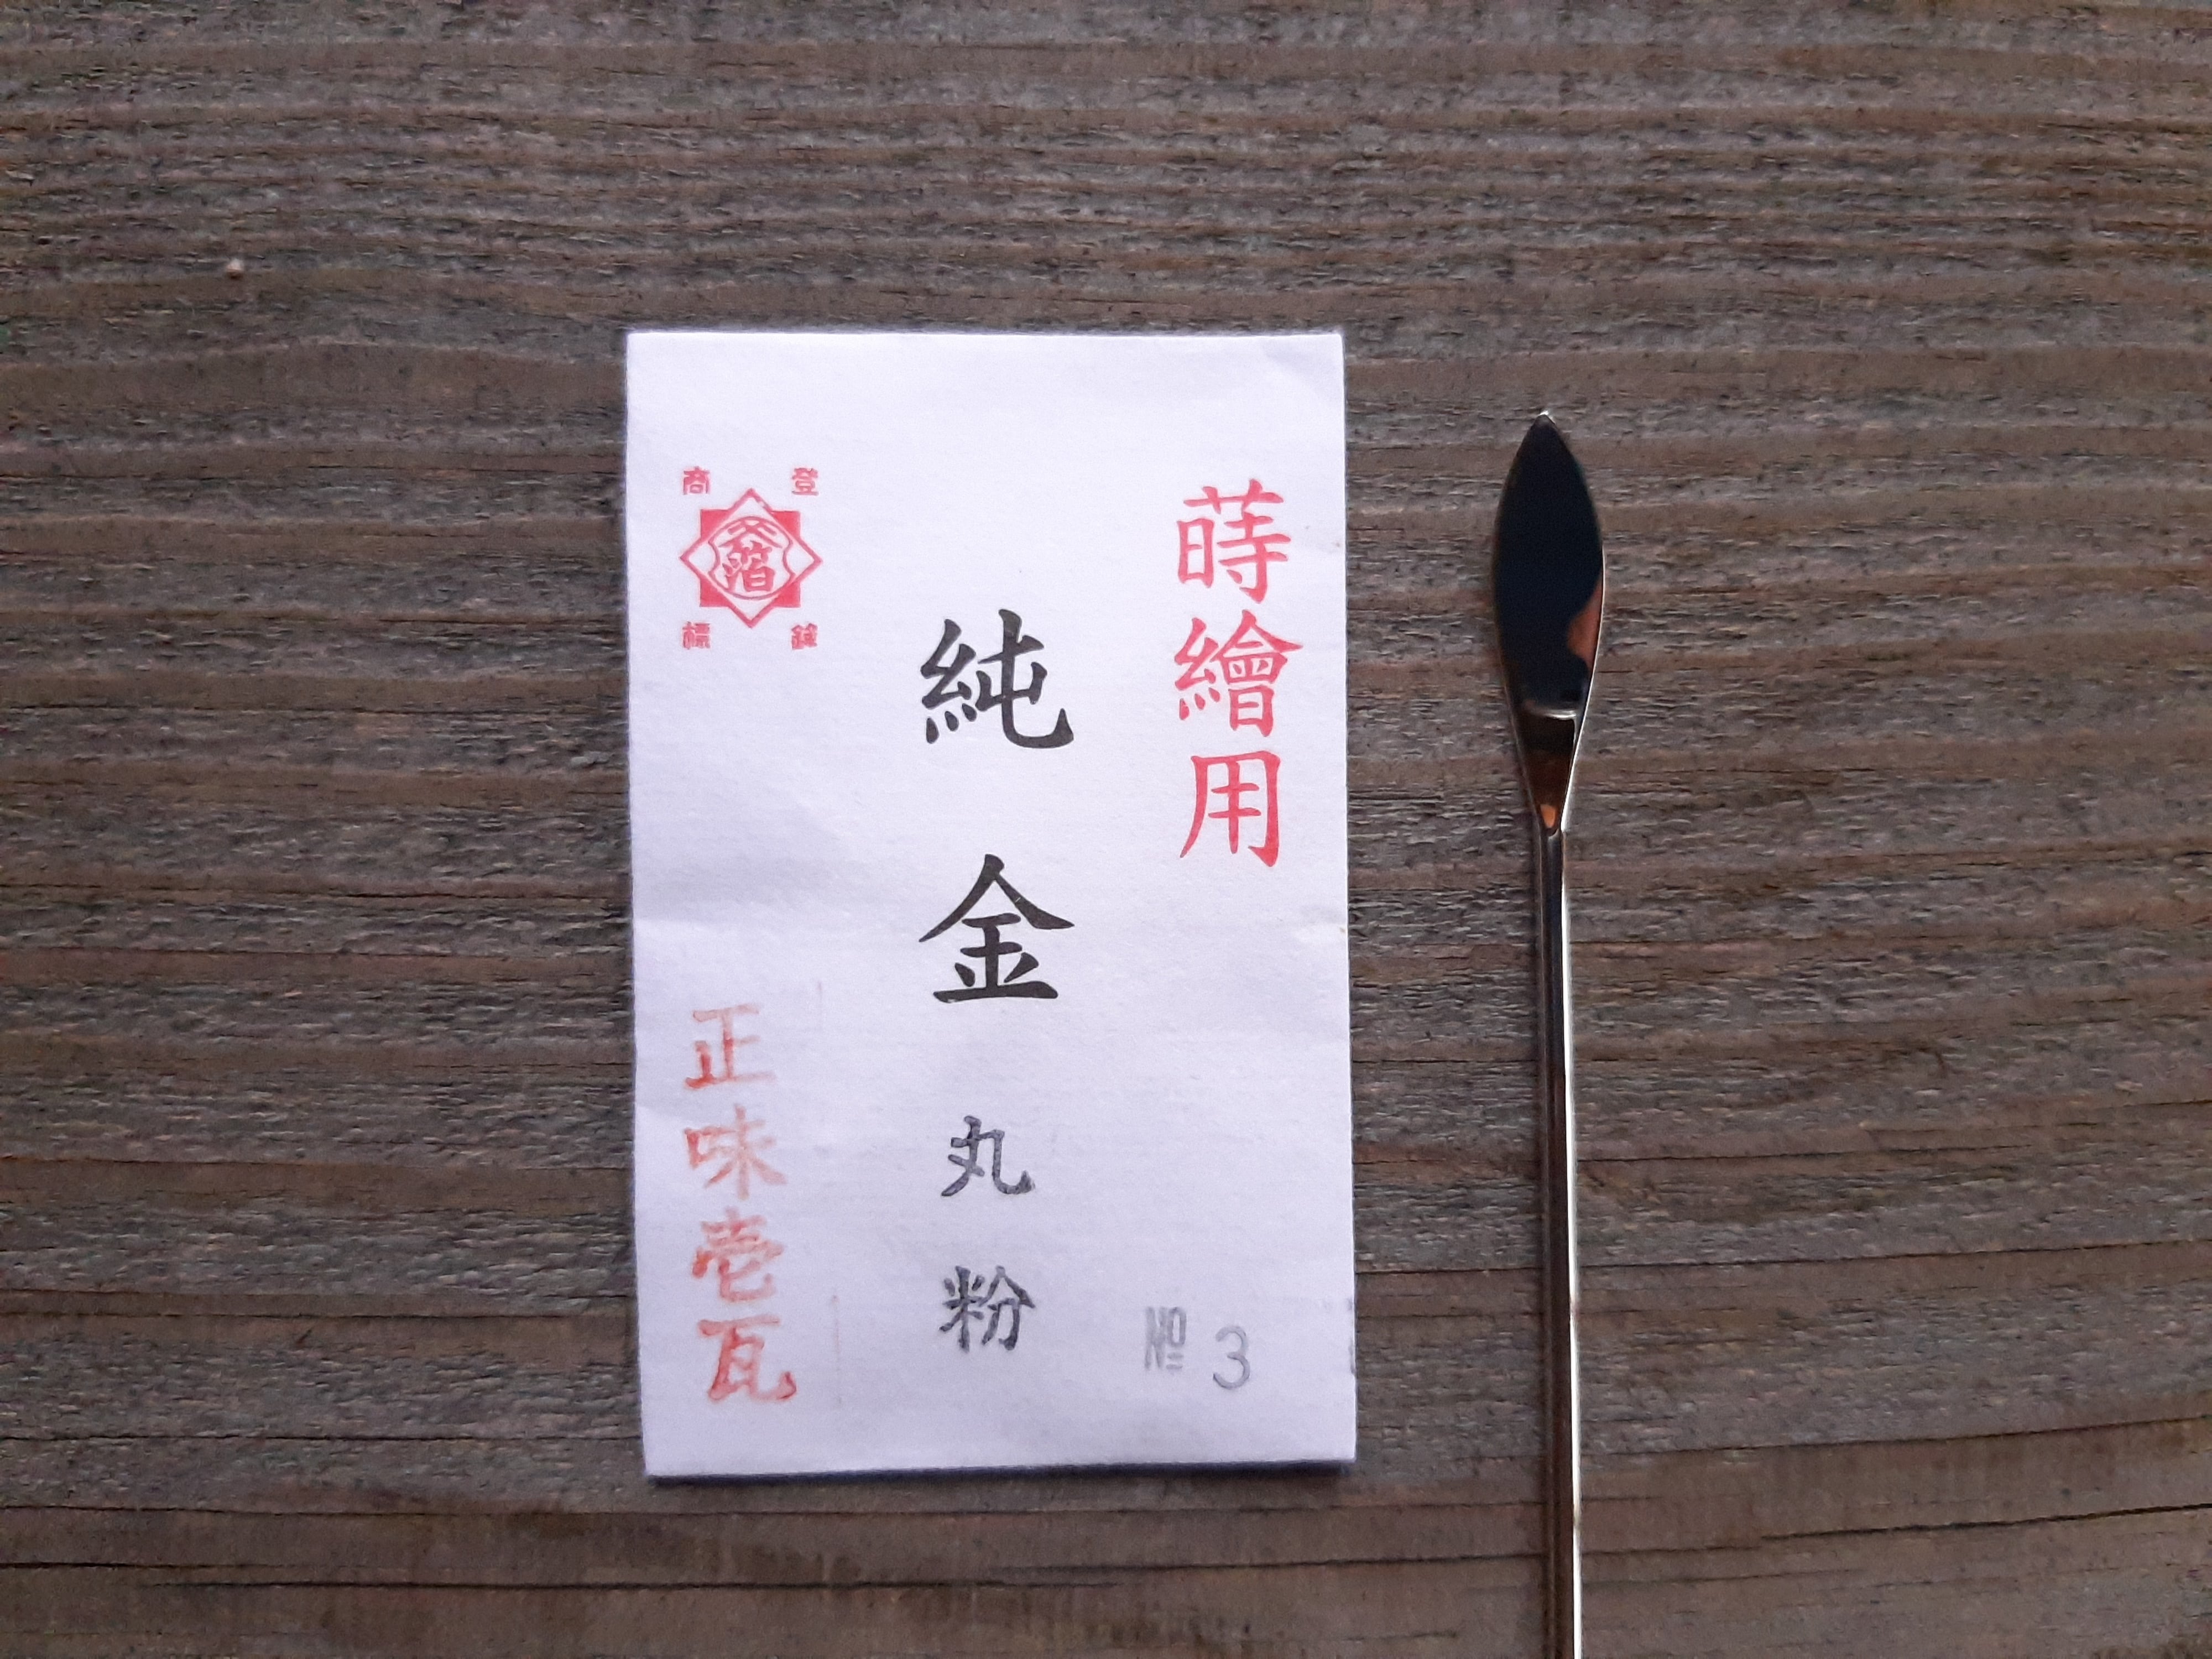 蒔繪用
純金丸粉
№ 3
登録商標
正味壱瓦